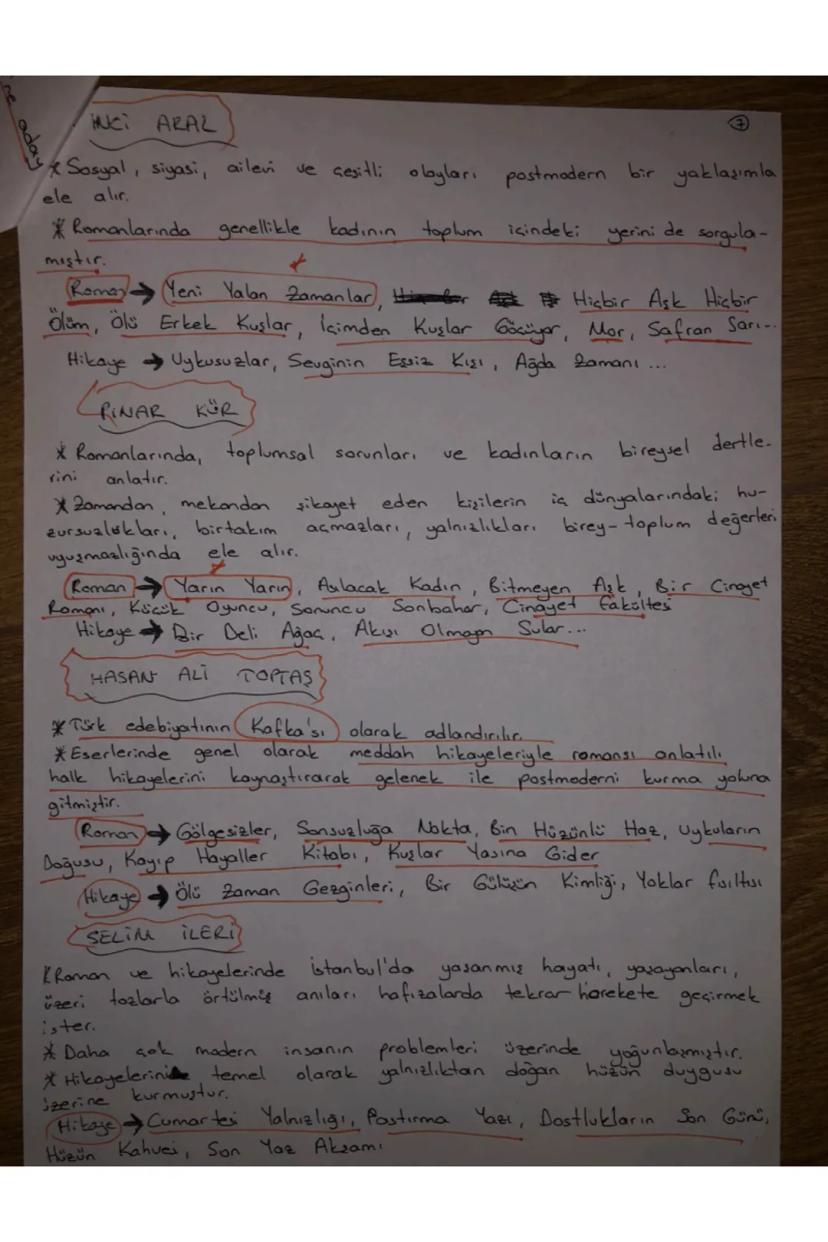 ne aday
İNCİ ARAL
7
* Sosyal, siyasi, ailevi ve çeşitli olayları postmodern bir yaklaşımla
ele alır.
* Romanlarında genellikle kadının toplum içindeki yerini de sorgula-
mıştır.
Roman → Yeni Yalan Zamanlar, Hiçbir Aşk Hiçbir
Ölüm, Ölü Erkek Kuşlar, İçimden Kuşlar Göçüyor, Mor, Safran Sarı...
Hikaye → Uykusuzlar, Sevginin Eşsiz Kışı, Ağda Zamanı ...
PINAR KÜR
* Romanlarında, toplumsal sorunları ve kadınların bireysel dertle-
rini anlatır.
* Zamandan, mekandan şikayet eden kişilerin iç dünyalarındaki hu-
zursuzlukları, birtakım açmazları, yalnızlıkları birey-toplum değerleri
uyuşmazlığında ele alır.
Roman → Yarın Yarın, Asılacak Kadın, Bitmeyen Aşk, Bir Cinayet
Romanı, Küçük Oyuncu, Sonuncu Sonbahar, Cinayet Fakültesi
Hikaye → Bir Deli Ağaç, Akışı Olmayan Sular...
HASAN ALİ TOPTAŞ
* Türk edebiyatının Kafka'sı olarak adlandırılır.
* Eserlerinde genel olarak meddah hikayeleriyle romansı anlatılı
halk hikayelerini kaynaştırarak gelenek ile postmoderni kurma yoluna
gitmiştir.
Roman → Gölgesizler, Sonsuzluğa Nokta, Bin Hüzünlü Haz, Uykuların
Doğusu, Kayıp Hayaller Kitabı, Kuşlar Yasına Gider
Hikaye → Ölü Zaman Gezginleri, Bir Gülüşün Kimliği, Yoklar Fısıltısı
SELİM İLERİ
* Roman ve hikayelerinde İstanbul'da yaşanmış hayatı, yaşayanları,
üzeri tozlarla örtülmüş anıları hafızalarda tekrar harekete geçirmek
ister.
* Daha çok modern insanın problemleri üzerinde yoğunlaşmıştır.
* Hikayelerini temel olarak yalnızlıktan doğan hüzün duygusu
üzerine kurmuştur.
Hikaye → Cumartesi Yalnızlığı, Pastırma Yazı, Dostlukların Son Günü,
Hüzün Kahvesi, Son Yaz Akşamı